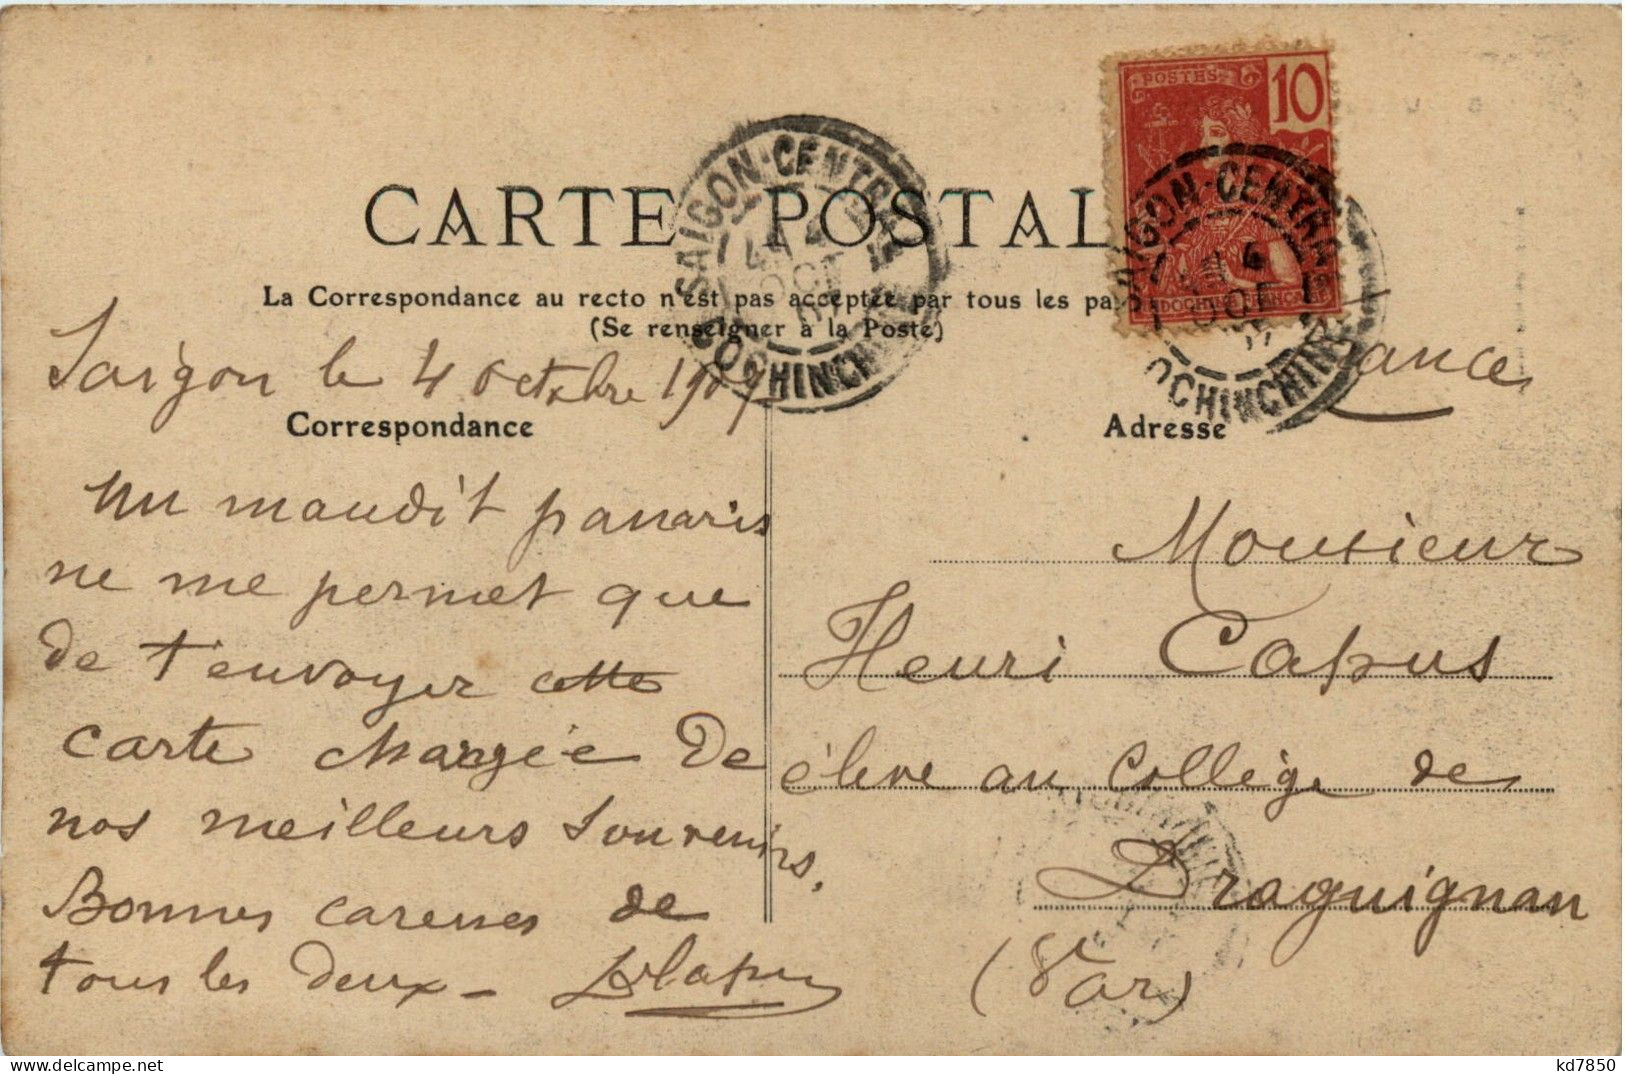 POSTES 10
INDOCHINE FRANÇAISE
SAIGON-CENTRAL
4 OCT 07
COCHINCHINE
SAIGON-CENTRAL
4 OCT
COCHINCHINE
CARTE POSTALE
La Correspondance au recto n'est pas acceptée par tous les pa
(Se renseigner à la Poste)
Saigon le 4 octobre 1907
Correspondance
Un maudit panaris
ne me permet que
de t'envoyer cette
carte chargée de
nos meilleurs souvenirs.
Bonnes caresses de
tous les deux -
France
Adresse
Monsieur
Henri Capus
élève au Collège de
Draguignan
(Var)
kd7850